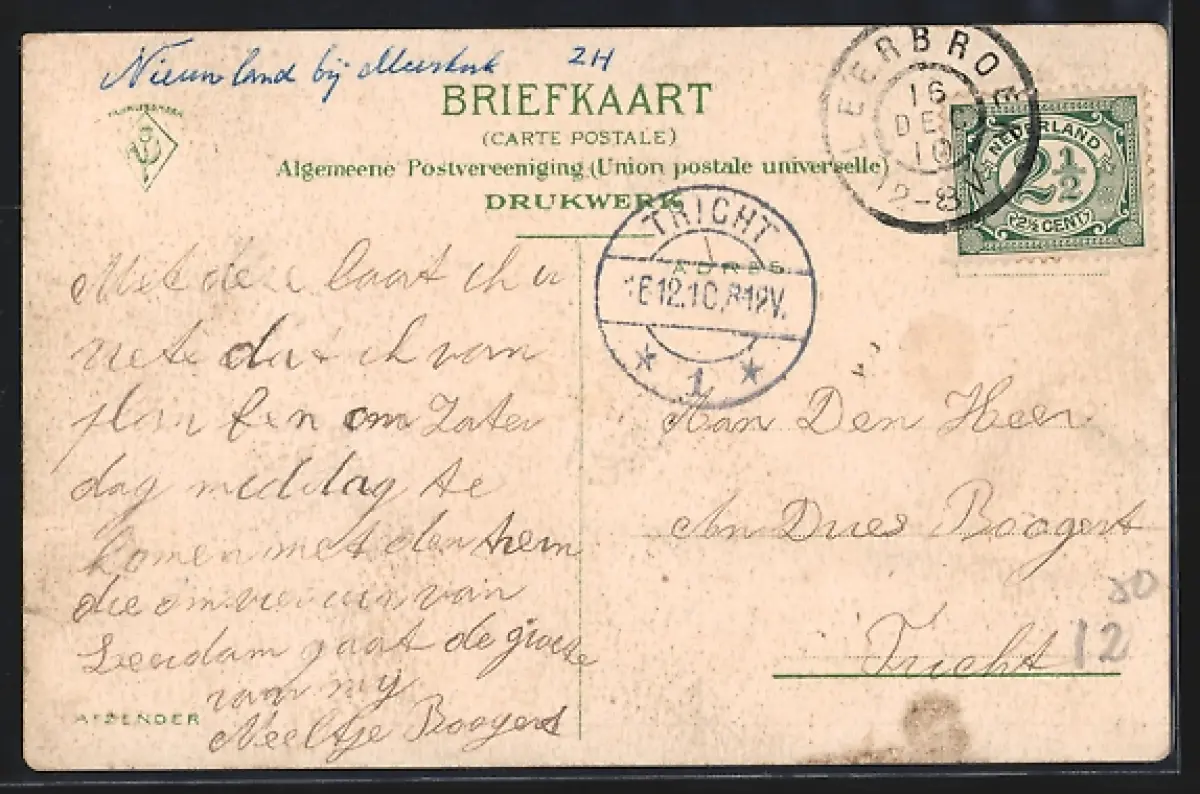 Nieuwland bij Meerkerk ZH
BRIEFKAART
(CARTE POSTALE)
Algemeene Postvereeniging (Union postale universelle)
DRUKWERK
LEERBROEK
16
DEC
10
12-8V
NEDERLAND
2½
2½ CENT
TRICHT
ADRES
16.12.10. 8-12V.
1
Met deze laat ich u
wete dat ich van
plan ben om Zater
dag middag te
komen met den trein
die om vier uur van
Leerdam gaat de groete
van mij
Neeltje Boogert
AFZENDER
Aan Den Heer
An Dries Boogert
Tricht
50
12